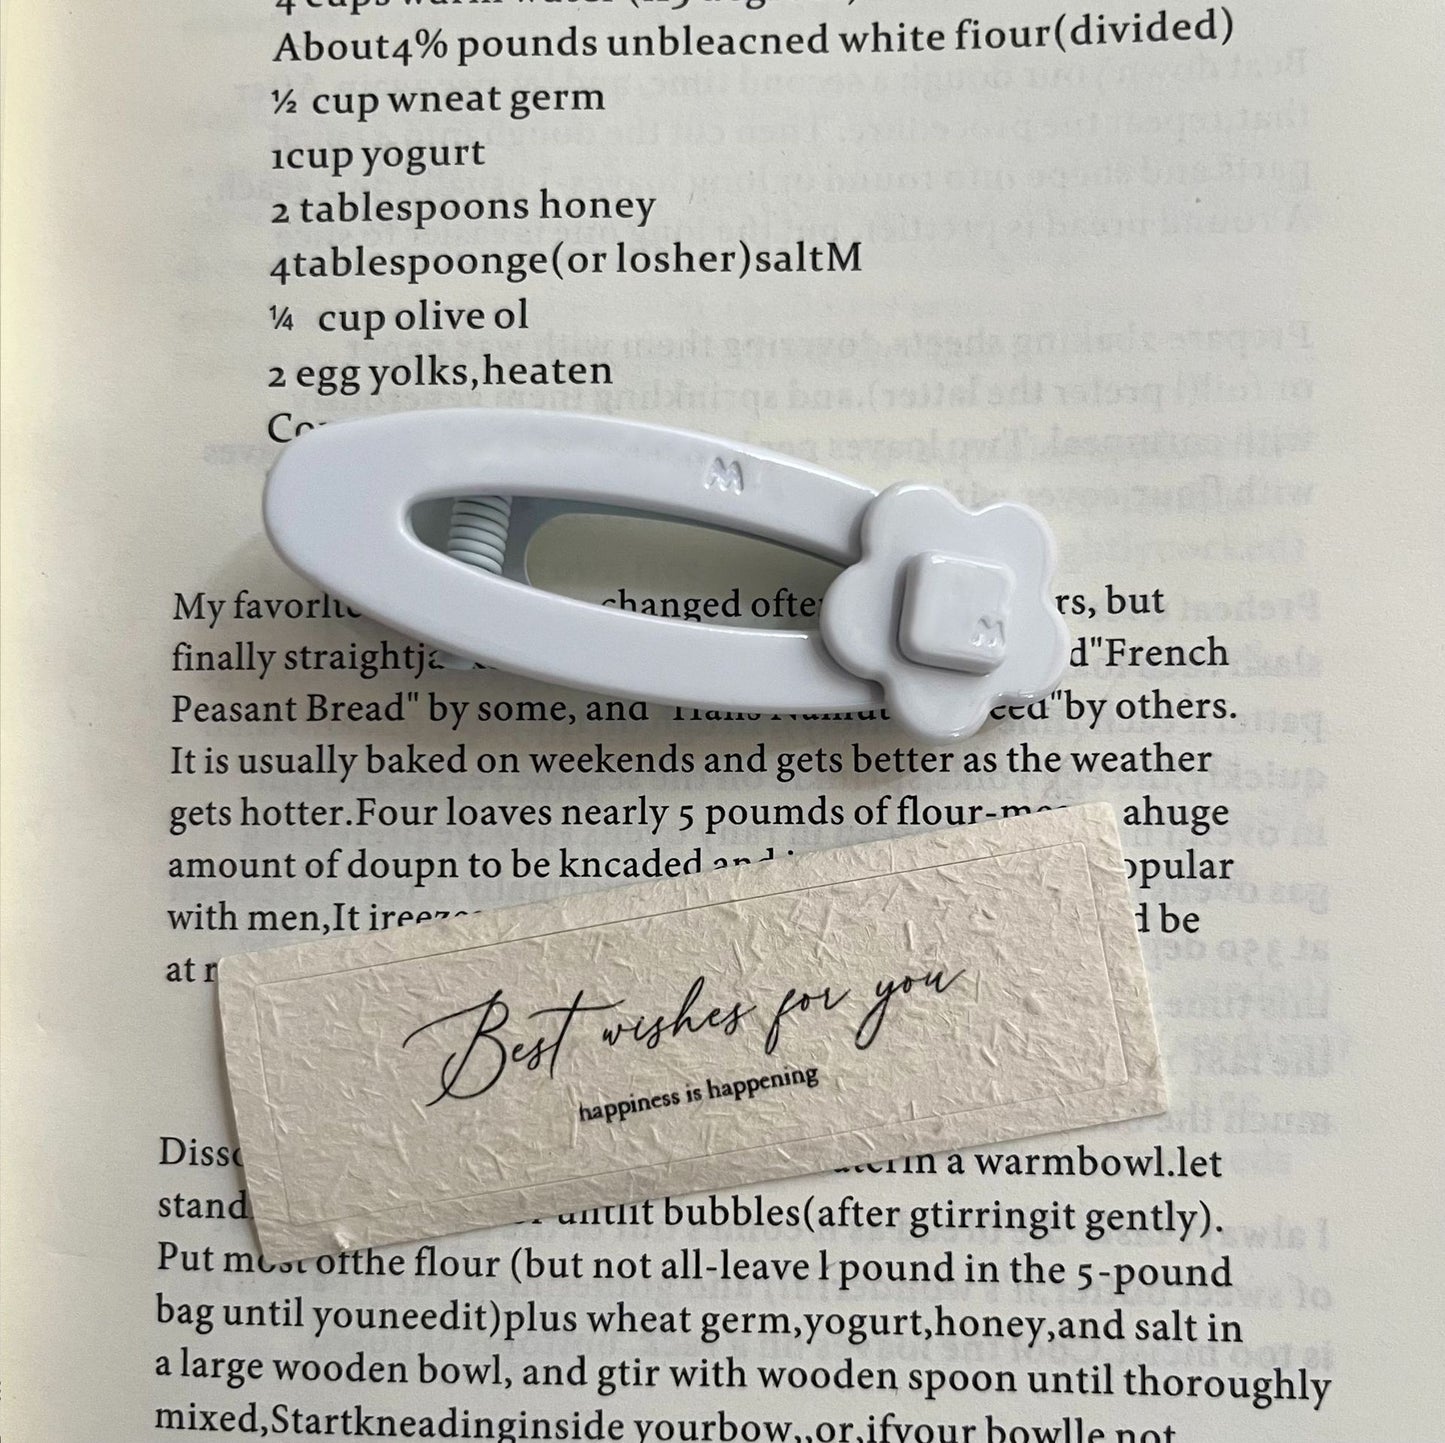 4 cups warm water
About4% pounds unbleacned white fiour(divided)
½ cup wneat germ
1cup yogurt
2 tablespoons honey
4tablespoonge(or losher)saltM
¼ cup olive ol
2 egg yolks,heaten
M
M
My changed rs, but
finally d"French
Peasant Bread" by some, and "by others.
It is usually baked on weekends and gets better as the weather
gets hotter.Four loaves nearly 5 poumds of flour- ahuge
amount of doupn to be kncaded and
with men,It be
at
Best wishes for you
happiness is happening
in a warmbowl.let
stand bubbles(after gtirringit gently).
Put most ofthe flour (but not all-leave l pound in the 5-pound
bag until youneedit)plus wheat germ,yogurt,honey,and salt in
a large wooden bowl, and gtir with wooden spoon until thoroughly
mixed,Startkneadinginside yourbow,,or,ifyour bowlle not